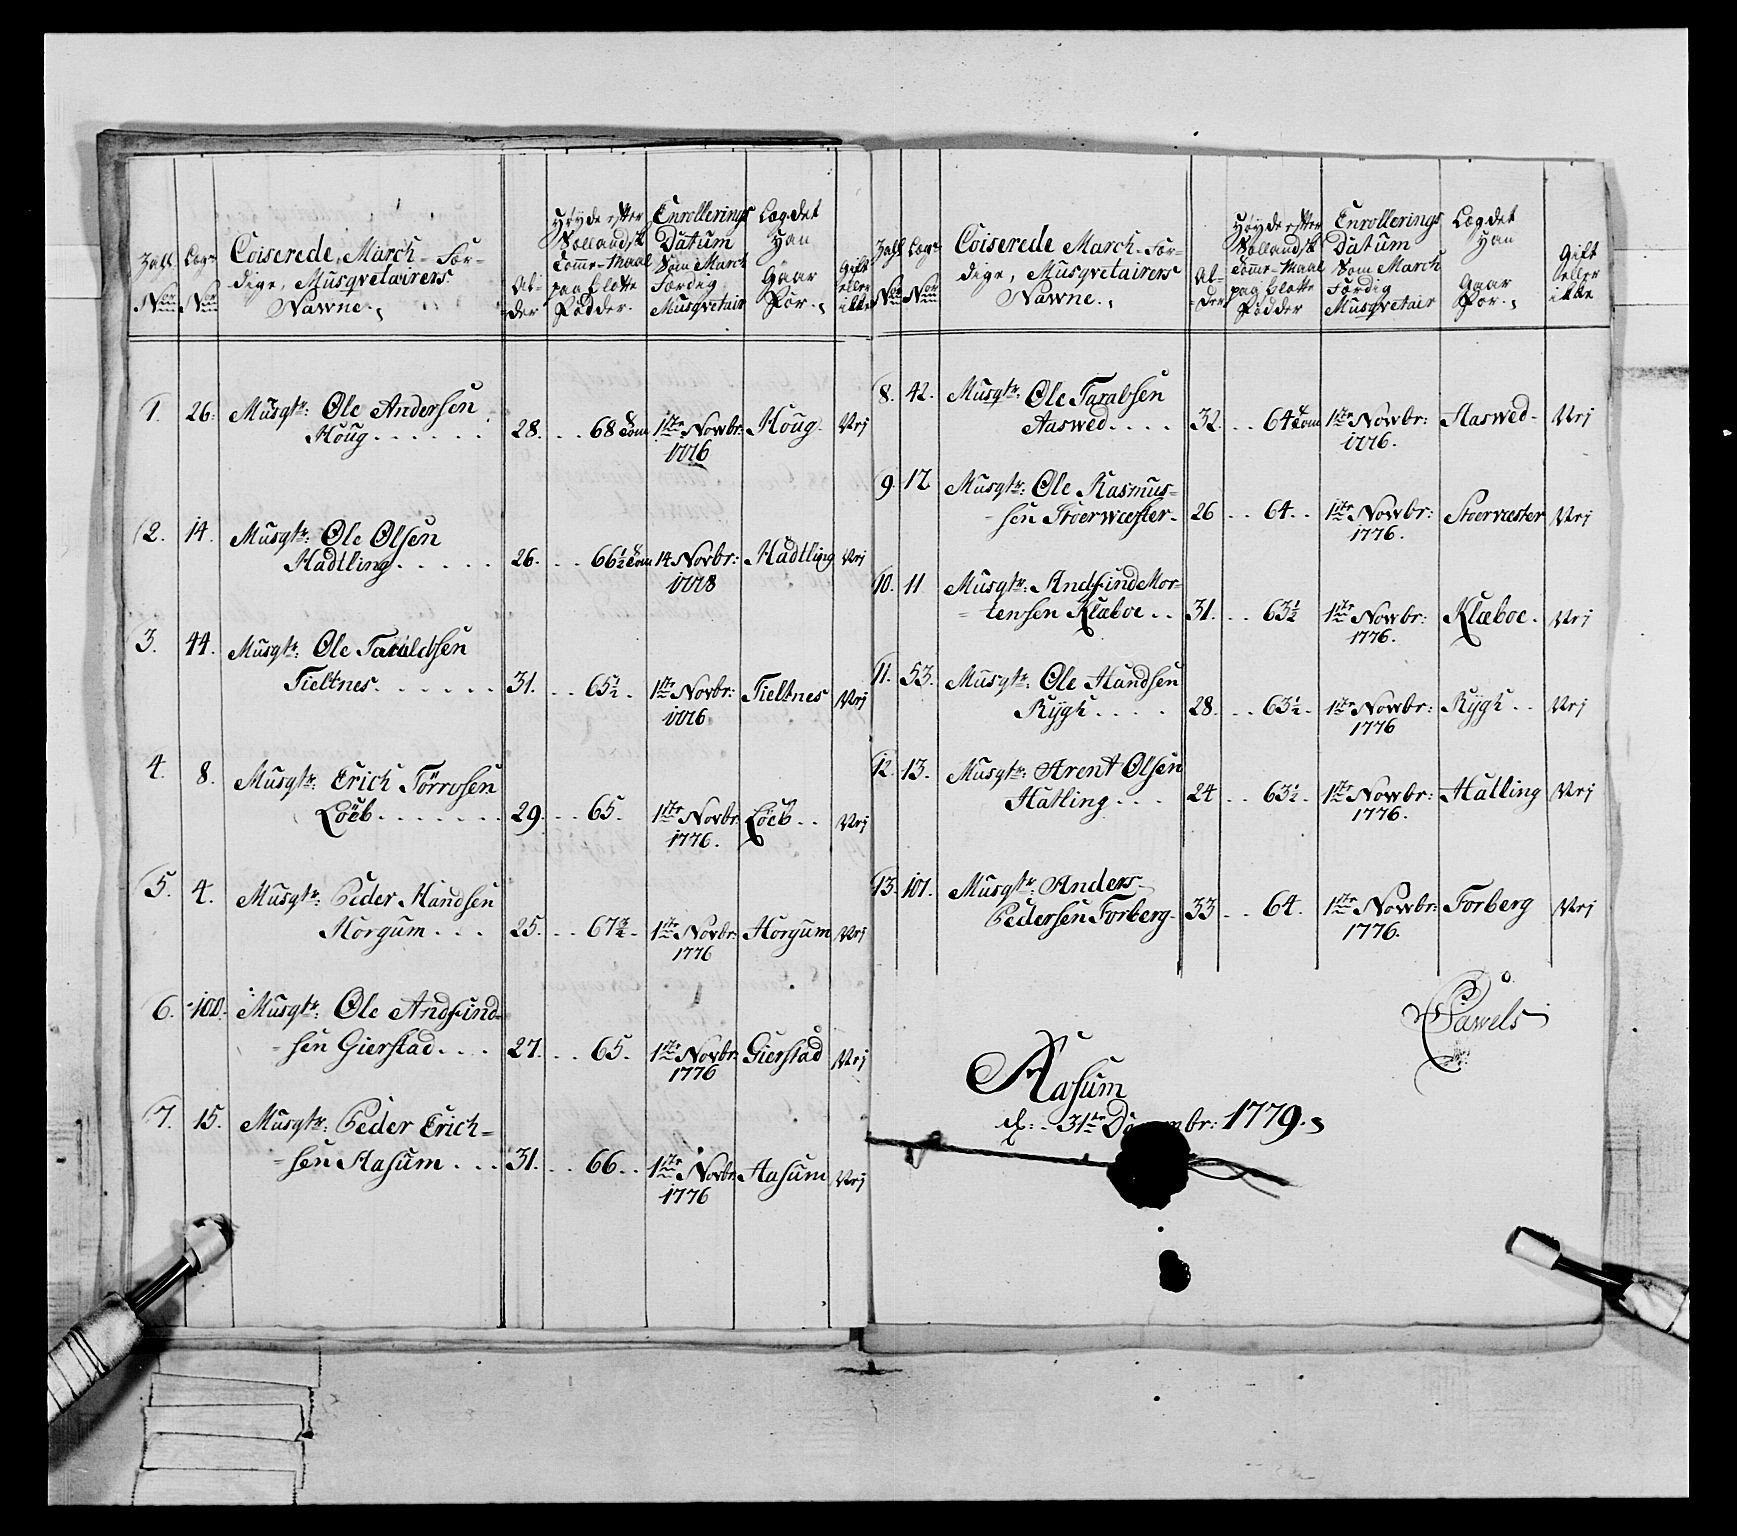 Zall Nou
Læg Nou
Coiserede March-Før-
dige, Musqvetairers
Nawne.
Al-
der
Høyde efter
Sællandsk
Tomme-Maal
paa blotte
Fødder.
Enrollerings
Datum
Som March
Færdig
Musqvetair
Lægdet
Han
Gaar
For.
Gift
eller
ikke
1. 26. Musqtr: Ole Andersen
Houg . . . . . . 28. . . 68 Tom 1ste Novbr: Houg. Urj
1776
2. 14. Musqtr: Ole Olsen
Hadtling . . . . . 26. . . 66½ Tom 14 Novbr: Hadtling Urj
1778
3. 44. Musqtr: Ole Taraldsen
Tieltnes. . . . . . 31. . . 65½. 1ste Novbr: Tieltnes Urj
1776
4. 8. Musqtr: Erich Törresen
Löeb . . . . . . . 29. . . 65. 1ste Novbr. Löeb . . Urj
1776.
5. 4. Musqtr: Peder Handsen
Horgum . . . 25. . . 67¾. 1ste Novbr: Horgum Urj
1776
6. 100. Musqtr: Ole Andfind-
=sen Gierstad . . . 27. . . 65. 1ste Novbr. Gierstad Urj
1776
7. 15. Musqtr: Peder Erich=
=sen Aasum . . . 31. . . 66. . 1ste Novbr. Aasum Urj
1776
Zall Nou
Læg Nou
Coiserede March-Før-
dige, Musqvetairers
Nawne.
Al-
der
Høyde efter
Sællandsk
Tomme-Maal
paa blotte
Fødder
Enrollerings
Datum
Som March
Færdig
Musqvetair
Lægdet
Han
Gaar
For.
Gift
eller
ikke
8. 42. Musqtr: Ole Taralsen
Aaswed . . . . 32. . . 64 Tom 1ste Novbr: Aaswed. Urj
1776.
9. 12 Musqtr: Ole Rasmus=
=sen Stoerwæster. 26 . . 64. . 1ste Novbr: Stoerwæster Urj
1776.
10. 11 Musqtr: Andfind Mor=
=tensen Klæboe . . 31. . . 63½ 1ste Novbr: Klæboe. Urj
1776.
11. 53. Musqtr: Ole Handsen
Rygh . . . . 28. . . 63½. 1ste Novbr: Rygh . . Urj
1776
12. 13. Musqtr: Arent Olsen
Hatling . . . 24 . . 63½. 1ste Novbr: Hatling Urj
1776.
13. 101. Musqtr: Anders
Pedersen Forberg. 33 . . 64. 1ste Novbr: Forberg Urj
1776.
Pawels
Aasum
d: 31te Dbr: 1779.